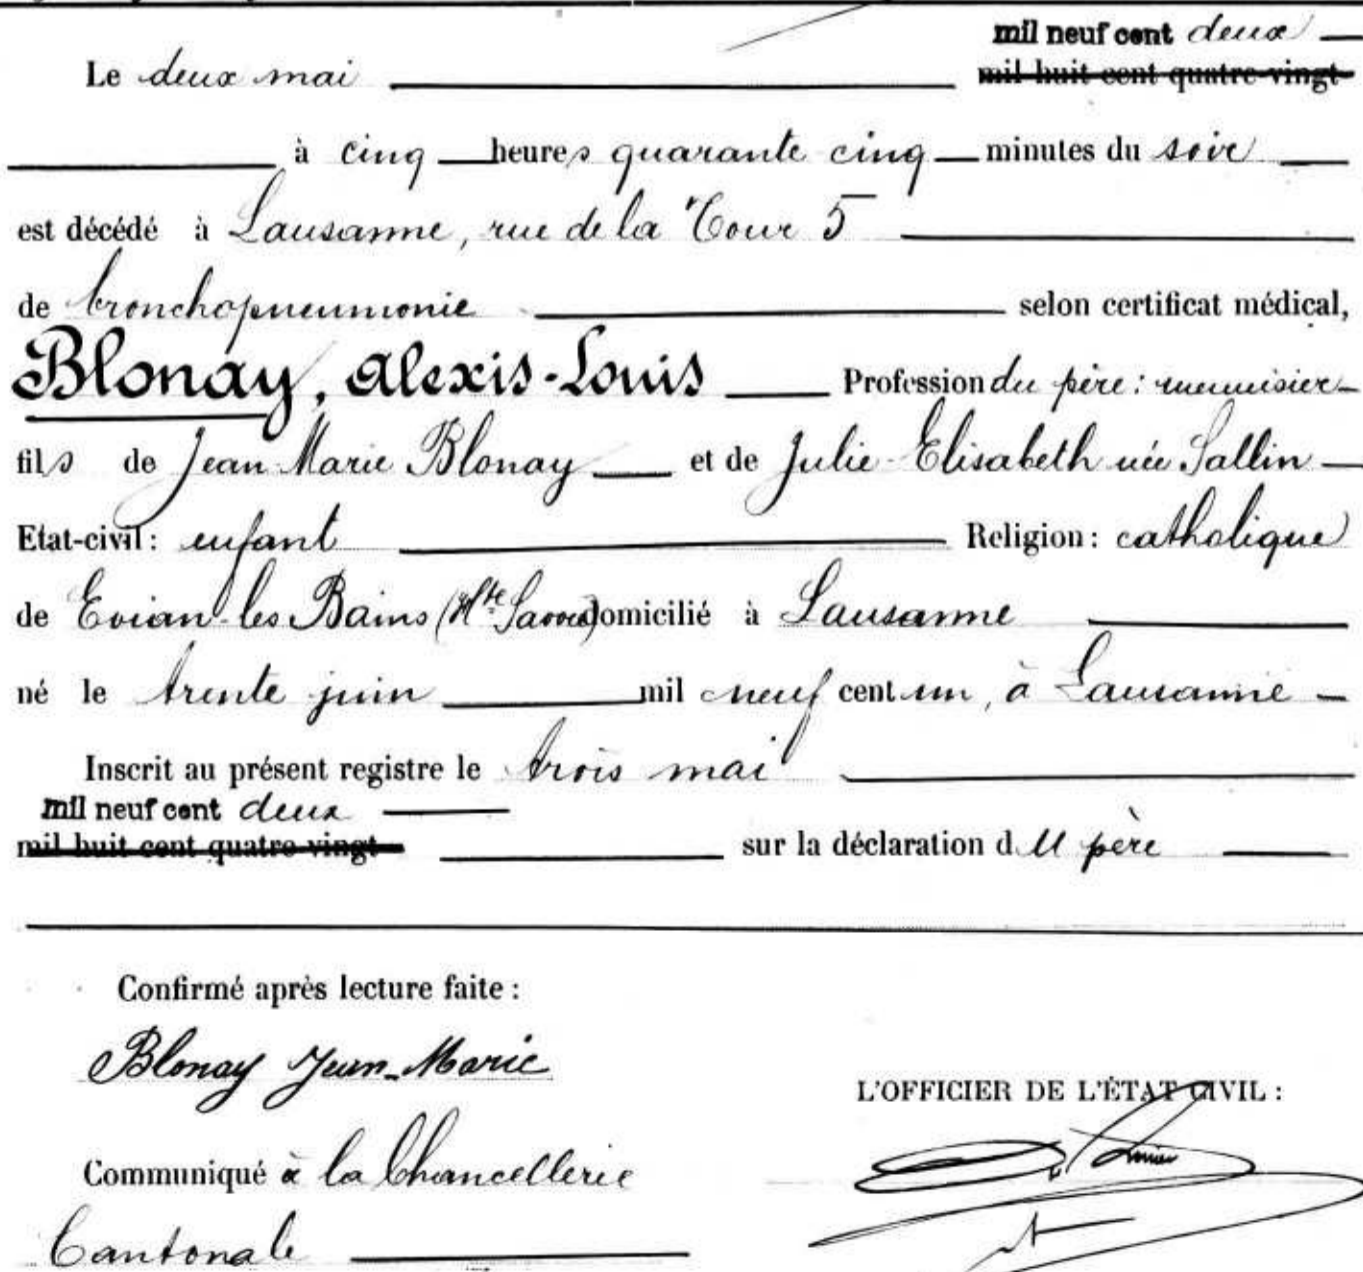 mil neuf cent deux
Le deux mai mil huit cent quatre-vingt
à cinq heures quarante cinq minutes du soir
est décédé à Lausanne, rue de la Tour 5
de bronchopneumonie selon certificat médical,
Blonay, Alexis-Louis Profession du père: menuisier
fils de Jean-Marie Blonay et de Julie-Elisabeth née Sallin
Etat-civil: enfant Religion: catholique
de Evian-les-Bains (Hte Savoie) domicilié à Lausanne
né le trente juin mil neuf cent un, à Lausanne
Inscrit au présent registre le trois mai
mil neuf cent deux
mil huit cent quatre-vingt sur la déclaration du père
Confirmé après lecture faite:
Blonay Jean-Marie
L'OFFICIER DE L'ÉTAT CIVIL:
Communiqué à la Chancellerie
Cantonale